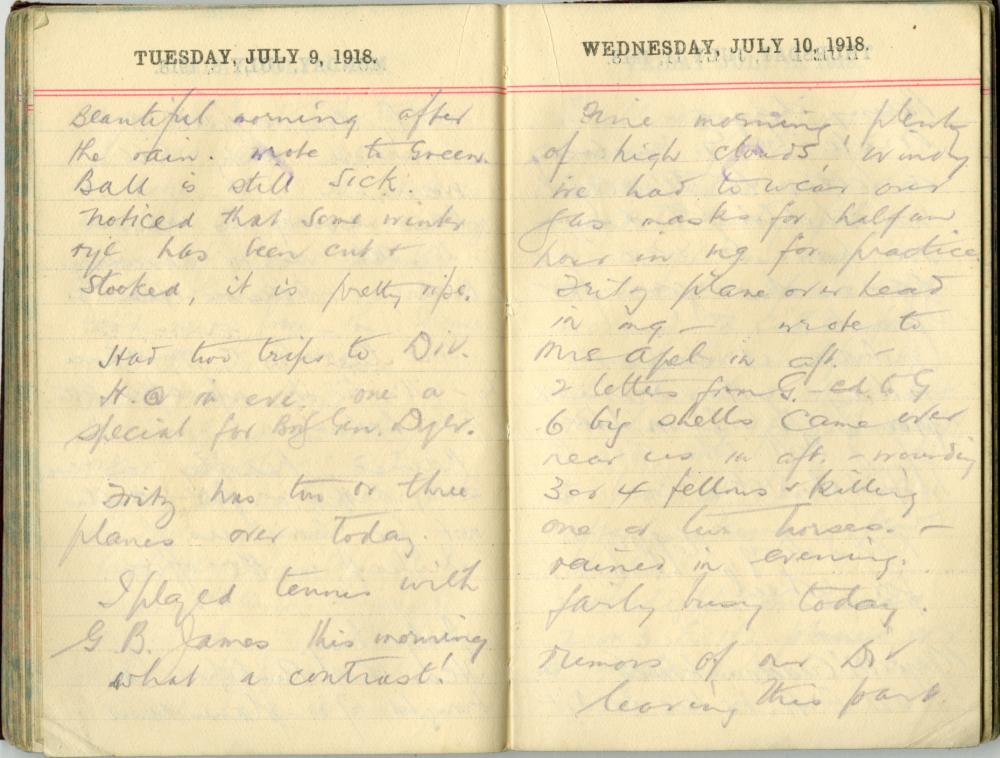 TUESDAY, JULY 9, 1918.
Beautiful morning after
the rain. wrote to Green.
Ball is still sick.
noticed that some winter
rye has been cut &
stooked, it is pretty ripe.
Had two trips to Div.
H.Q in eve. one a
special for Brig Gen. Dyer.
Fritz has two or three
planes over today.
I played tennis with
G. B. James this morning
what a contrast!
WEDNESDAY, JULY 10, 1918.
Fine morning plenty
of high clouds windy
we had to wear our
gas masks for half an
hour in mg for practice.
Fritz plane over head
in mg - wrote to
in aft. -
2 letters from G. - cd. to G
6 big shells came over
near us in aft. - wounding
3 or 4 fellows & killing
one or two horses. -
rained in evening.
fairly busy today.
rumors of our Div
leaving this part.